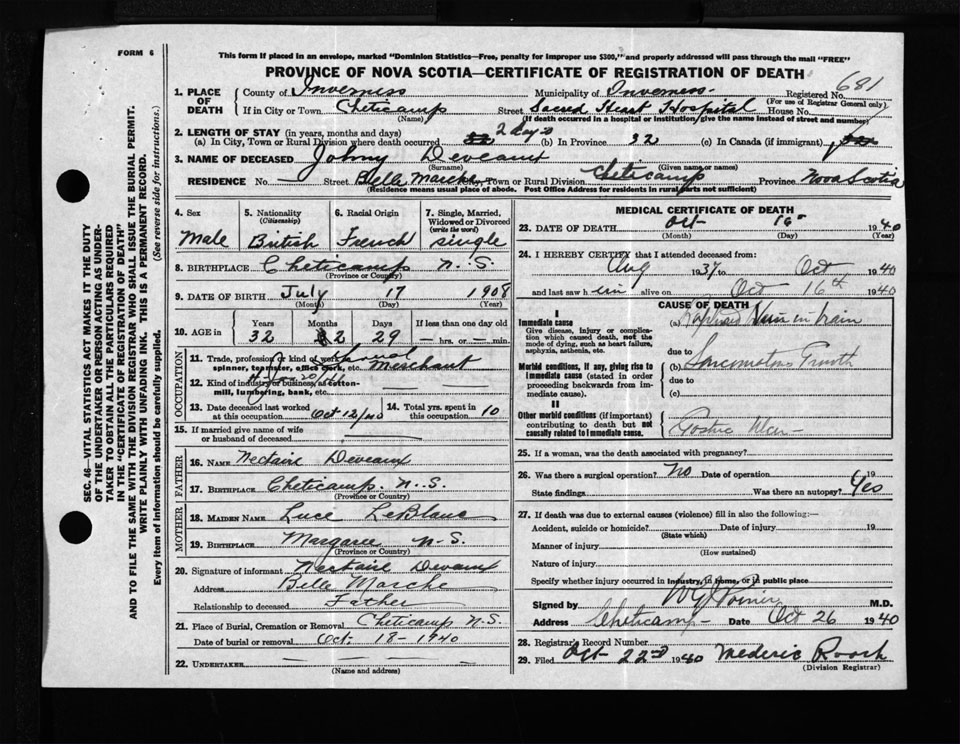 FORM 6
This form if placed in an envelope, marked "Dominion Statistics—Free, penalty for improper use $300," and properly addressed will pass through the mail "FREE"
PROVINCE OF NOVA SCOTIA—CERTIFICATE OF REGISTRATION OF DEATH
681
1. PLACE OF DEATH County of Inverness Municipality of Inverness Registered No.
(For use of Registrar General only.)
If in City or Town Cheticamp Street Sacred Heart Hospital House No.
(Name) (If death occurred in a hospital or institution, give the name instead of street and number)
2. LENGTH OF STAY (in years, months and days)
(a) In City, Town or Rural Division where death occurred 2 days (b) In Province 32 (c) In Canada (if immigrant)
3. NAME OF DECEASED Johny Deveaux
(Surname) (Given name or names)
RESIDENCE No. Street Belle Marche City, Town or Rural Division Cheticamp Province Nova Scotia
(Residence means usual place of abode. Post Office Address for residents in rural parts not sufficient)
4. Sex Male
5. Nationality (Citizenship) British
6. Racial Origin French
7. Single, Married, Widowed or Divorced (write the word) single
8. BIRTHPLACE Cheticamp N.S.
(Province or Country)
9. DATE OF BIRTH July 17 1908
(Month) (Day) (Year)
10. AGE in Years Months Days If less than one day old
32 2 29 hrs. or min.
OCCUPATION
11. Trade, profession or kind of work as spinner, teamster, office clerk, etc. Merchant
12. Kind of industry or business, as cotton-mill, lumbering, bank, etc.
13. Date deceased last worked at this occupation Oct 12/40
14. Total yrs. spent in this occupation 10
15. If married give name of wife or husband of deceased
FATHER
16. Name Nectaire Deveaux
17. Birthplace Cheticamp N.S.
(Province or Country)
MOTHER
18. Maiden Name Luce LeBlanc
19. Birthplace Margaree N.S.
(Province or Country)
20. Signature of informant Nectaire Deveaux
Address Belle Marche
Relationship to deceased Father
21. Place of Burial, Cremation or Removal Cheticamp N.S.
Date of burial or removal Oct. 18 - 1940
22. Undertaker
(Name and address)
MEDICAL CERTIFICATE OF DEATH
23. DATE OF DEATH Oct 16 1940
(Month) (Day) (Year)
24. I HEREBY CERTIFY that I attended deceased from:
Aug 1937 to Oct 1940
and last saw him alive on Oct 16th 1940
CAUSE OF DEATH
I
Immediate cause
Give disease, injury or complication which caused death, not the mode of dying, such as heart failure, asphyxia, asthenia, etc.
(a) in brain
Morbid conditions, if any, giving rise to immediate cause (stated in order proceeding backwards from immediate cause).
due to
(b)
due to
(c)
II
Other morbid conditions (if important) contributing to death but not causally related to immediate cause.
25. If a woman, was the death associated with pregnancy?
26. Was there a surgical operation? No Date of operation 19
State findings Was there an autopsy? Yes
27. If death was due to external causes (violence) fill in also the following:—
Accident, suicide or homicide? Date of injury 19
(State which)
Manner of injury
(How sustained)
Nature of injury
Specify whether injury occurred in industry, in home, or in public place
Signed by M.D.
Address Cheticamp Date Oct 26 1940
28. Registrar's Record Number
29. Filed Oct 22nd 1940 Mederic Roach
(Division Registrar)
SEC. 46—VITAL STATISTICS ACT MAKES IT THE DUTY
OF THE UNDERTAKER OR PERSON ACTING AS UNDER-
TAKER TO OBTAIN ALL THE PARTICULARS REQUIRED
IN THE "CERTIFICATE OF REGISTRATION OF DEATH"
AND TO FILE THE SAME WITH THE DIVISION REGISTRAR WHO SHALL ISSUE THE BURIAL PERMIT.
WRITE PLAINLY WITH UNFADING INK. THIS IS A PERMANENT RECORD.
Every item of information should be carefully supplied. (See reverse side for instructions.)